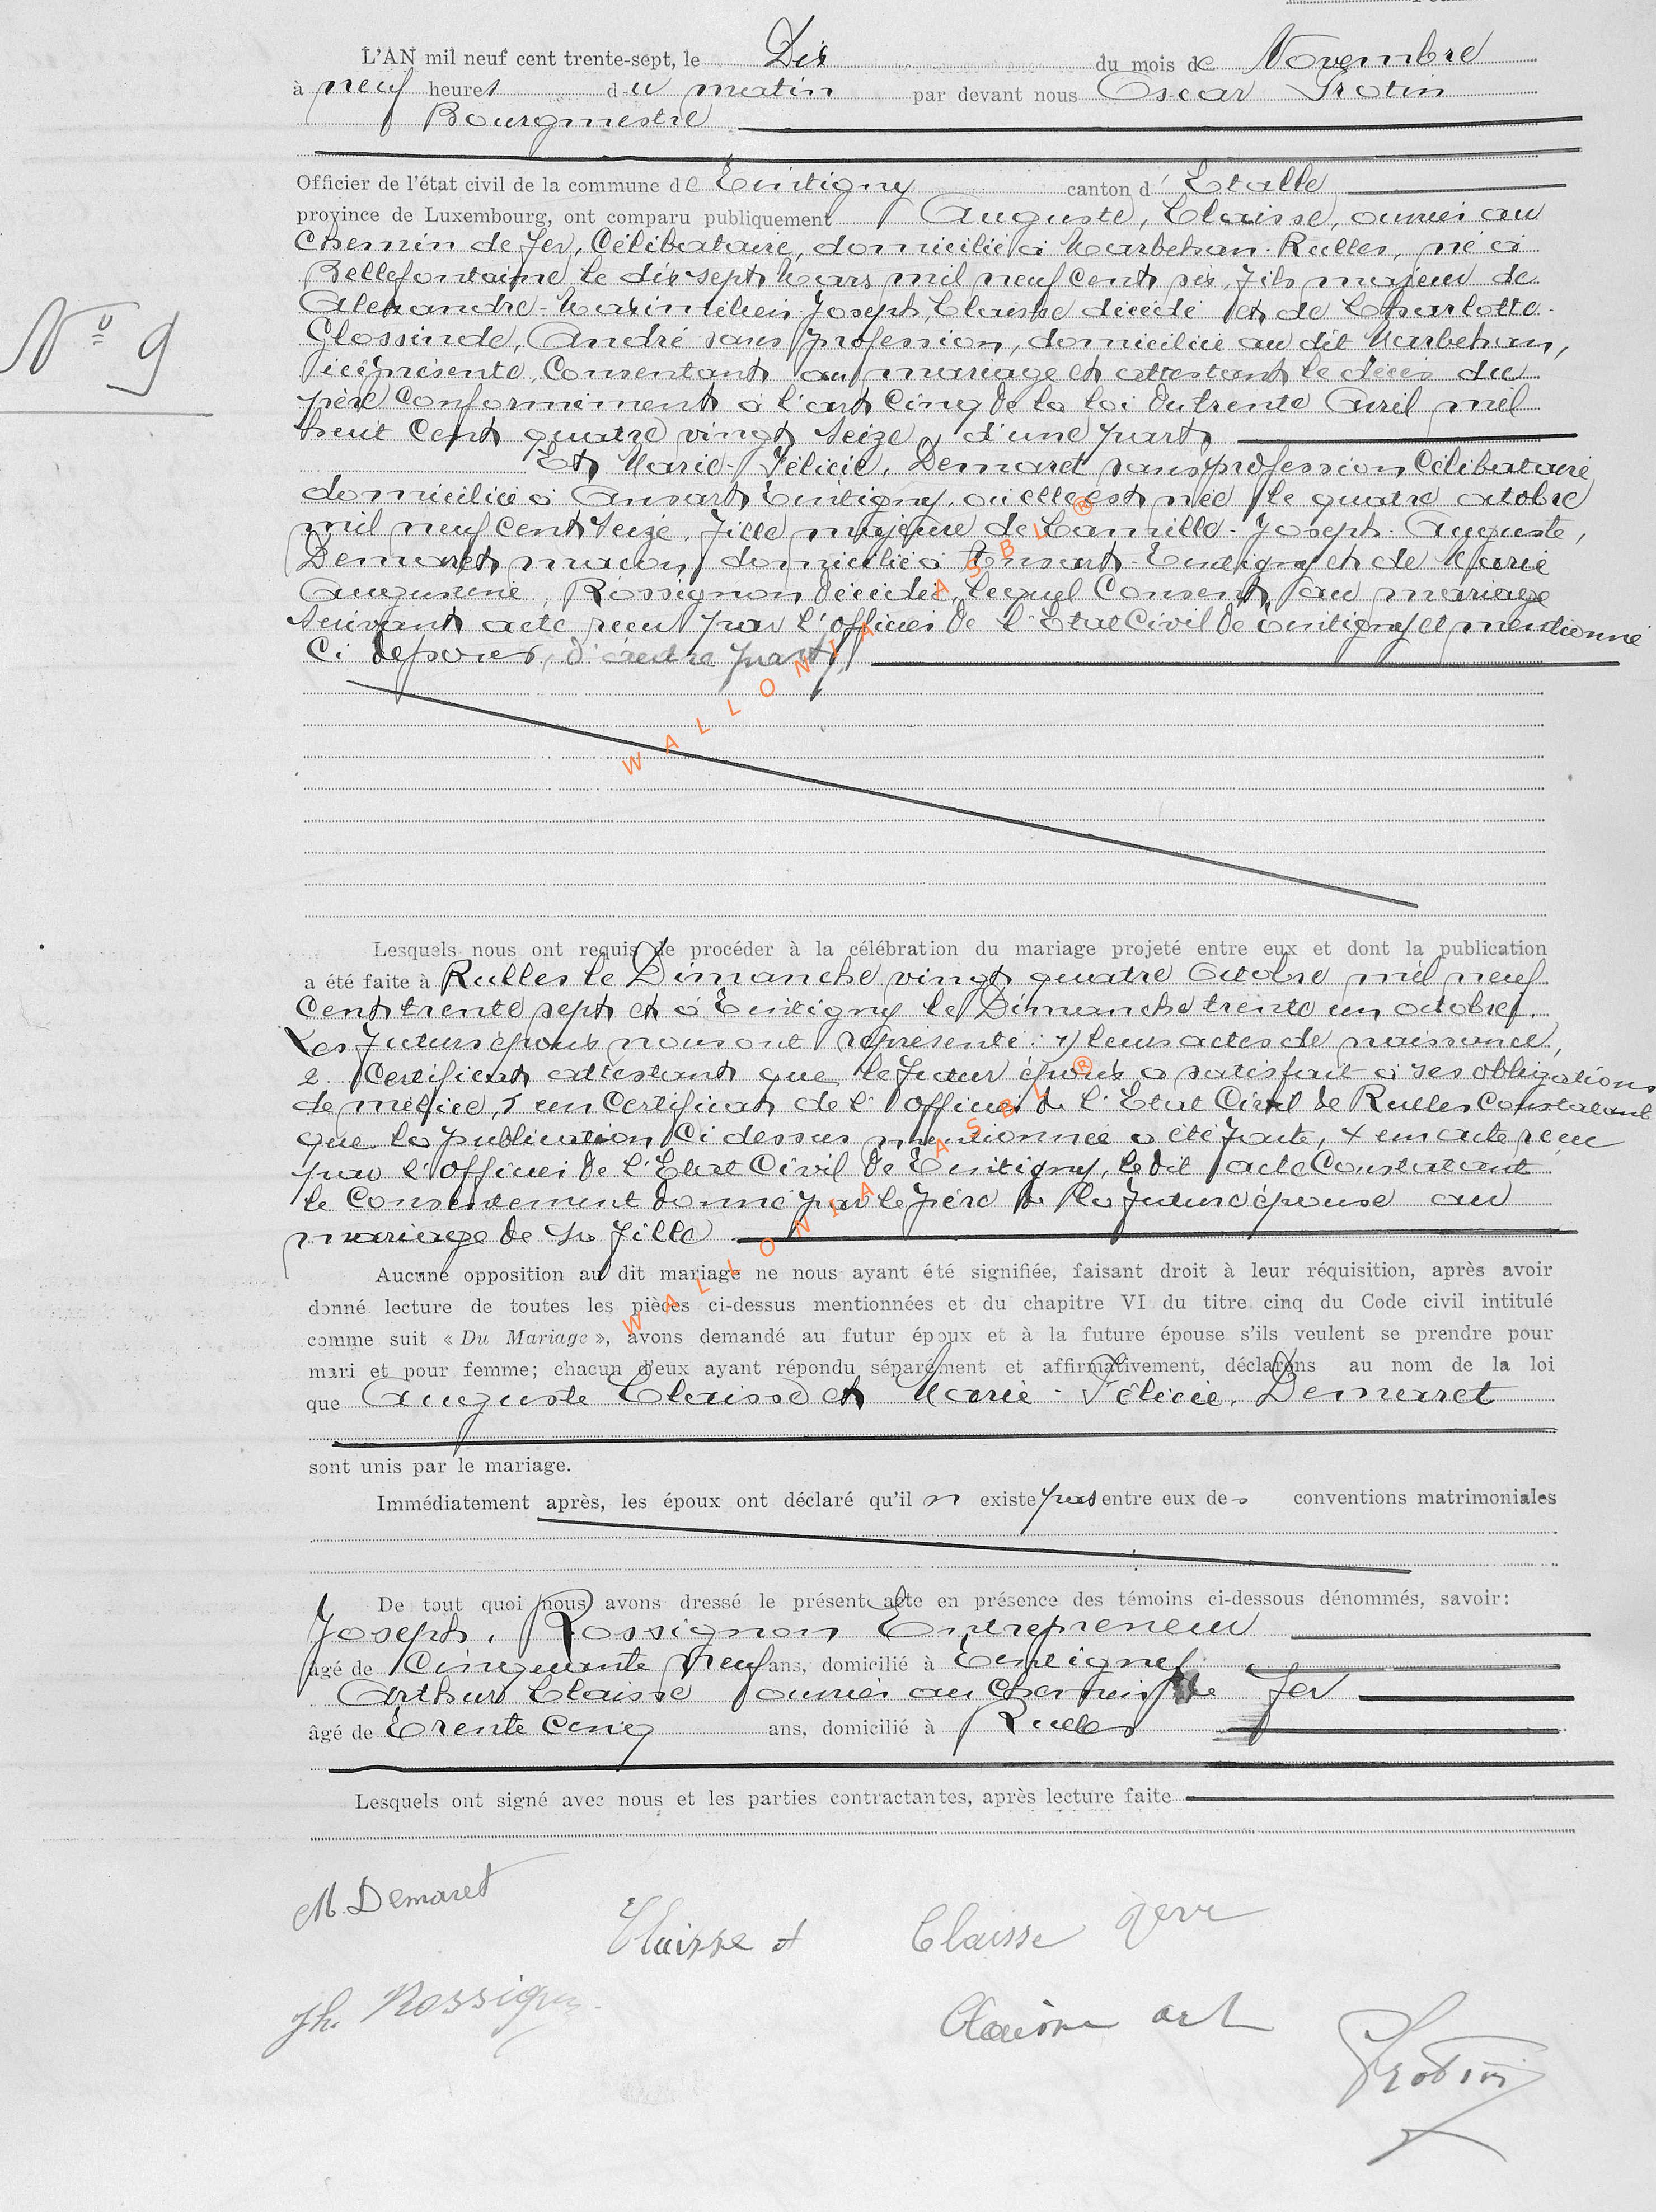 L'AN mil neuf cent trente-sept, le Dix du mois de Novembre
à neuf heures du matin par devant nous Oscar Frotin
Bourgmestre
Officier de l'état civil de la commune de Tintigny canton d' Etalle
province de Luxembourg, ont comparu publiquement Auguste, Claisse, ouvrier au
Chemin de fer, Célibataire, domicilié à Marbehan-Rulles, né à
Bellefontaine le dix-sept Mars mil neuf cent six, fils majeur de
Alexandre-Maximilien-Joseph, Claisse décédé et de Charlotte-
Glossinde, André sans profession, domiciliée au dit Marbehan,
ici présente, Consentant au mariage et attestant le décès du
père Conformément à l'art Cinq de la loi du trente Avril mil
huit Cent quatre vingt seize, d'une part,
Et Marie-Félicie, Demaret sans profession Célibataire
domiciliée à Ansart Tintigny où elle est née le quatre octobre
mil neuf cent seize, fille majeure de Camille-Joseph-Auguste,
Demaret, maçon, domicilié à Ansart-Tintigny et de Marie
Augustine, Rossignon décédée, lequel Consent au mariage
suivant acte reçu par l'officier de l'Etat Civil de Tintigny et mentionné
Ci depores, d'autre part,
Lesquels nous ont requis de procéder à la célébration du mariage projeté entre eux et dont la publication
a été faite à Rulles le Dimanche vingt quatre Octobre mil neuf
Cent trente sept et à Tintigny le Dimanche trente un octobre.
Les futurs époux nous ont représenté: 1) leurs actes de naissance,
2. Certificat attestant que le futur époux a satisfait à ses obligations
de milice, 3 un Certificat de l'officier de l'Etat Civil de Rulles Constatant
que la publication Ci dessus mentionnée a été faite, 4 un acte reçu
par l'officier de l'Etat Civil de Tintigny, le dit acte Constatant
le Consentement donné par le père de la future épouse au
mariage de sa fille
Aucune opposition au dit mariage ne nous ayant été signifiée, faisant droit à leur réquisition, après avoir
donné lecture de toutes les pièces ci-dessus mentionnées et du chapitre VI du titre cinq du Code civil intitulé
comme suit « Du Mariage », avons demandé au futur époux et à la future épouse s'ils veulent se prendre pour
mari et pour femme; chacun d'eux ayant répondu séparément et affirmativement, déclarons au nom de la loi
que Auguste Claisse et Marie-Félicie, Demaret
sont unis par le mariage.
Immédiatement après, les époux ont déclaré qu'il n existe pas entre eux des conventions matrimoniales
De tout quoi nous avons dressé le présent acte en présence des témoins ci-dessous dénommés, savoir:
Joseph, Rossignon Entrepreneur
âgé de Cinquante neuf ans, domicilié à Tintigny
Arthur Claisse ouvrier au Chemin de fer
âgé de Trente Cinq ans, domicilié à Rulles
Lesquels ont signé avec nous et les parties contractantes, après lecture faite
M. Demaret
Claisse A Claisse
Jh. Rossignon
Claisse art
Frotin
Nº 9
WALLONIA ASBL ®
WALLONIA ASBL ®